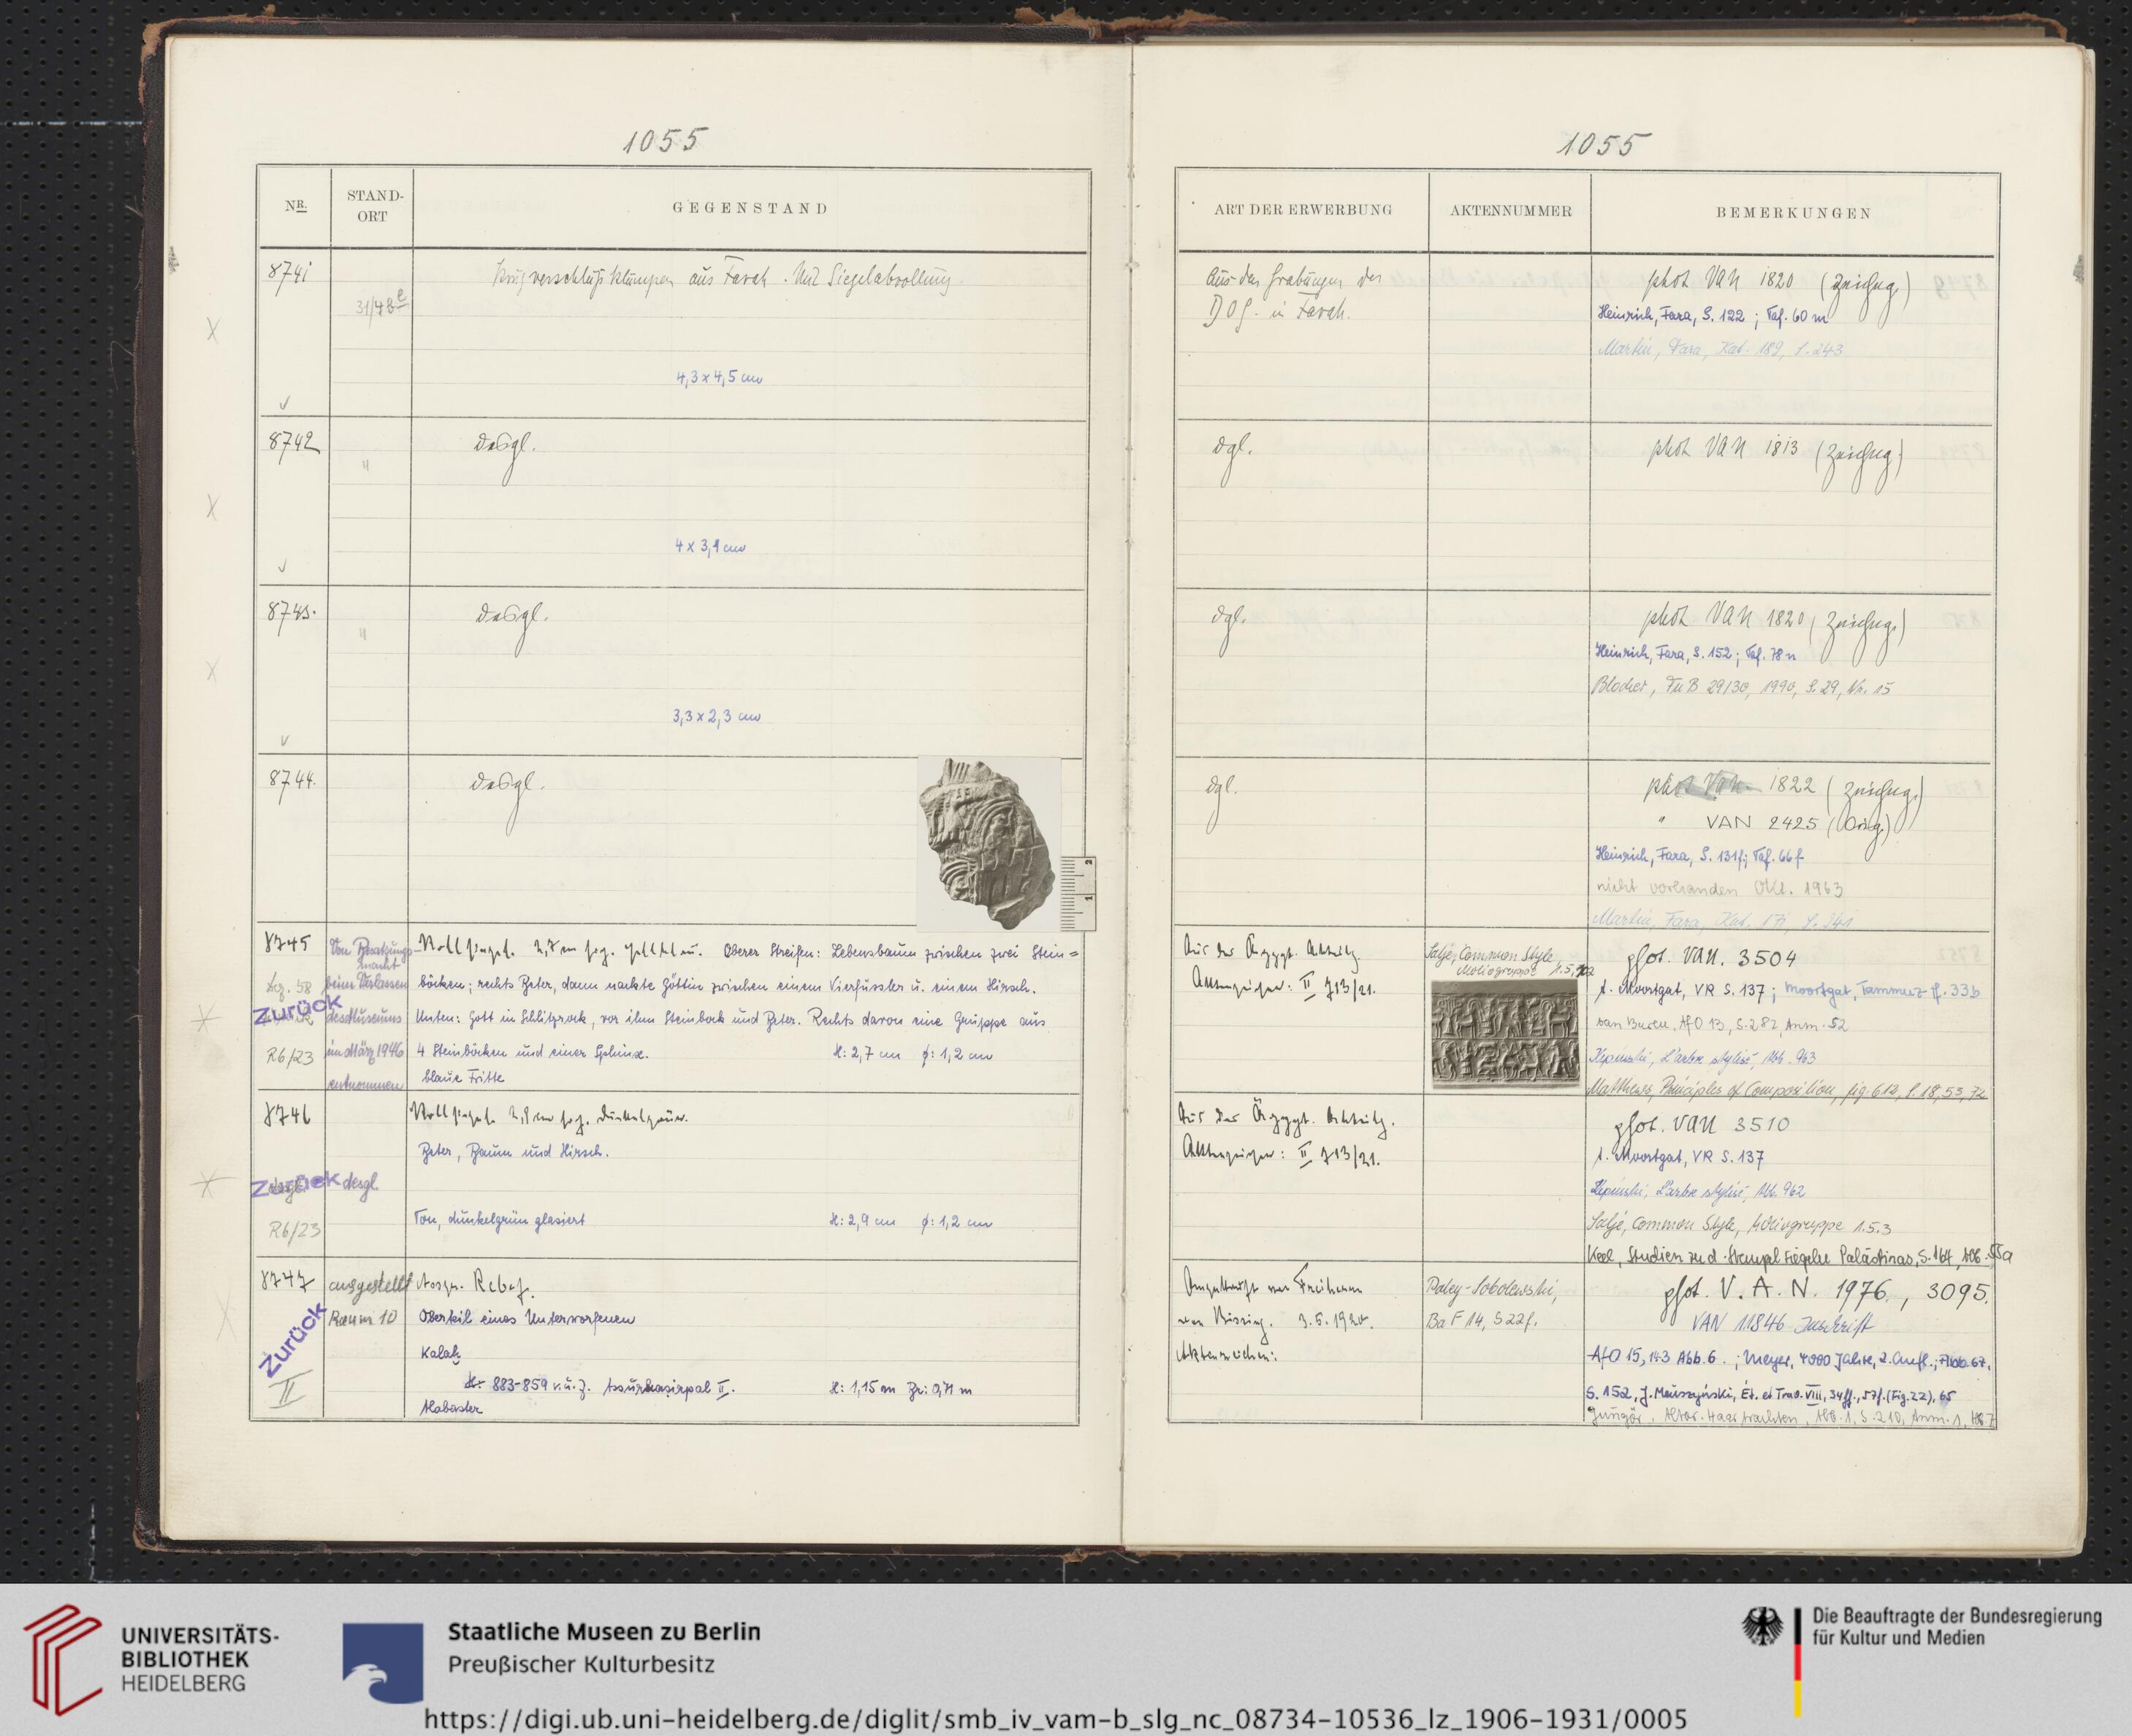 1055
NR.
STAND-
ORT
GEGENSTAND
8741
31/48e
Krugverschlußklumpen aus Farah. Mit Siegelabrollung.
4,3 x 4,5 cm
8742
"
desgl.
4 x 3,9 cm
8743.
"
desgl.
3,3 x 2,3 cm
8744.
desgl.
8745
Von Besatzungs-
macht
beim Verlassen
des Museums
im März 1946
entnommen
Zurück
R6/23
Rollsiegel. 2,7 cm hoch. hellblau. Oberer Streifen: Lebensbaum zwischen zwei Stein=
böcken; rechts Beter, dann nackte Göttin zwischen einem Vierfüssler u. einem Hirsch.
Unten: Gott in Schlitzrock, vor ihm Steinbock und Beter. Rechts davon eine Gruppe aus
4 Steinböcken und einer Sphinx. H: 2,7 cm ϕ: 1,2 cm
blaue Fritte
8746
Zurück desgl.
R6/23
Rollsiegel. 2,9 cm hoch. dunkelgrün.
Beter, Baum und Hirsch.
Ton, dunkelgrün glasiert H: 2,9 cm ϕ: 1,2 cm
8747
ausgestellt
Raum 10
Zurück
II
Assyr. Relief.
Oberteil eines Unterworfenen
Kalah
883-859 v.u.Z. Assurnasirpal II. H: 1,15 m Br: 0,71 m
Alabaster
1055
ART DER ERWERBUNG
AKTENNUMMER
BEMERKUNGEN
Aus den Grabungen der
DOG. in Farah.
phot VAN 1820 (Zeichng.)
Heinrich, Fara, S. 122 ; Taf. 60 m
Martin, Fara, Kat. 189, S. 243
dgl.
phot VAN 1813 (Zeichng)
dgl.
phot VAN 1820 (Zeichng.)
Heinrich, Fara, S. 152; Taf. 78 n
Blocher, FuB 29/30, 1990, S. 29, Nr. 15
dgl.
phot VAN 1822 (Zeichng.)
" VAN 2425 (Orig.)
Heinrich, Fara, S. 131f; Taf. 66 f
nicht vorhanden Okt. 1963
Martin, Fara, Kat.
2
1
Aus der Ägypt. Abteilg.
Aktenzeichen: II 713/21.
Salje, Common Style,
phot. VAN. 3504
s. Moortgat, VR S. 137; Moortgat, Tammuz S. 33b
van Buren, AfO 13, S. 282, Anm. 52
Kepinski, L'arbre stylisé, Abb. 963
Matthews, Principles of Composition, fig. 612, S. 18, 53, 72
Aus der Ägypt. Abteilg.
Aktenzeichen: II 713/21.
phot. VAN 3510
s. Moortgat, VR S. 137
Kepinski, L'arbre stylisé, Abb. 962
Salje, Common Style, Motivgruppe 1.5.3
Keel, Studien zu d. Stempelsiegeln Palästinas, S. 164, Abb. 55a
Angekauft von Freiherrn
von Bissing. 3.5.19
Aktenzeichen:
Paley-Sobolewski,
BaF 14, S 22f.
phot. V. A. N. 1976., 3095.
VAN 11846 Inschrift
AfO 15, 143 Abb. 6. ; Meyer, 4000 Jahre, 2. Aufl.; Abb. 67,
S. 152, J. Meuszyński, Ét. et Trav. VIII, 34ff., 57f. (Fig. 22), 65
UNIVERSITÄTS-
BIBLIOTHEK
HEIDELBERG
Staatliche Museen zu Berlin
Preußischer Kulturbesitz
Die Beauftragte der Bundesregierung
für Kultur und Medien
https://digi.ub.uni-heidelberg.de/diglit/smb_iv_vam-b_slg_nc_08734-10536_lz_1906-1931/0005